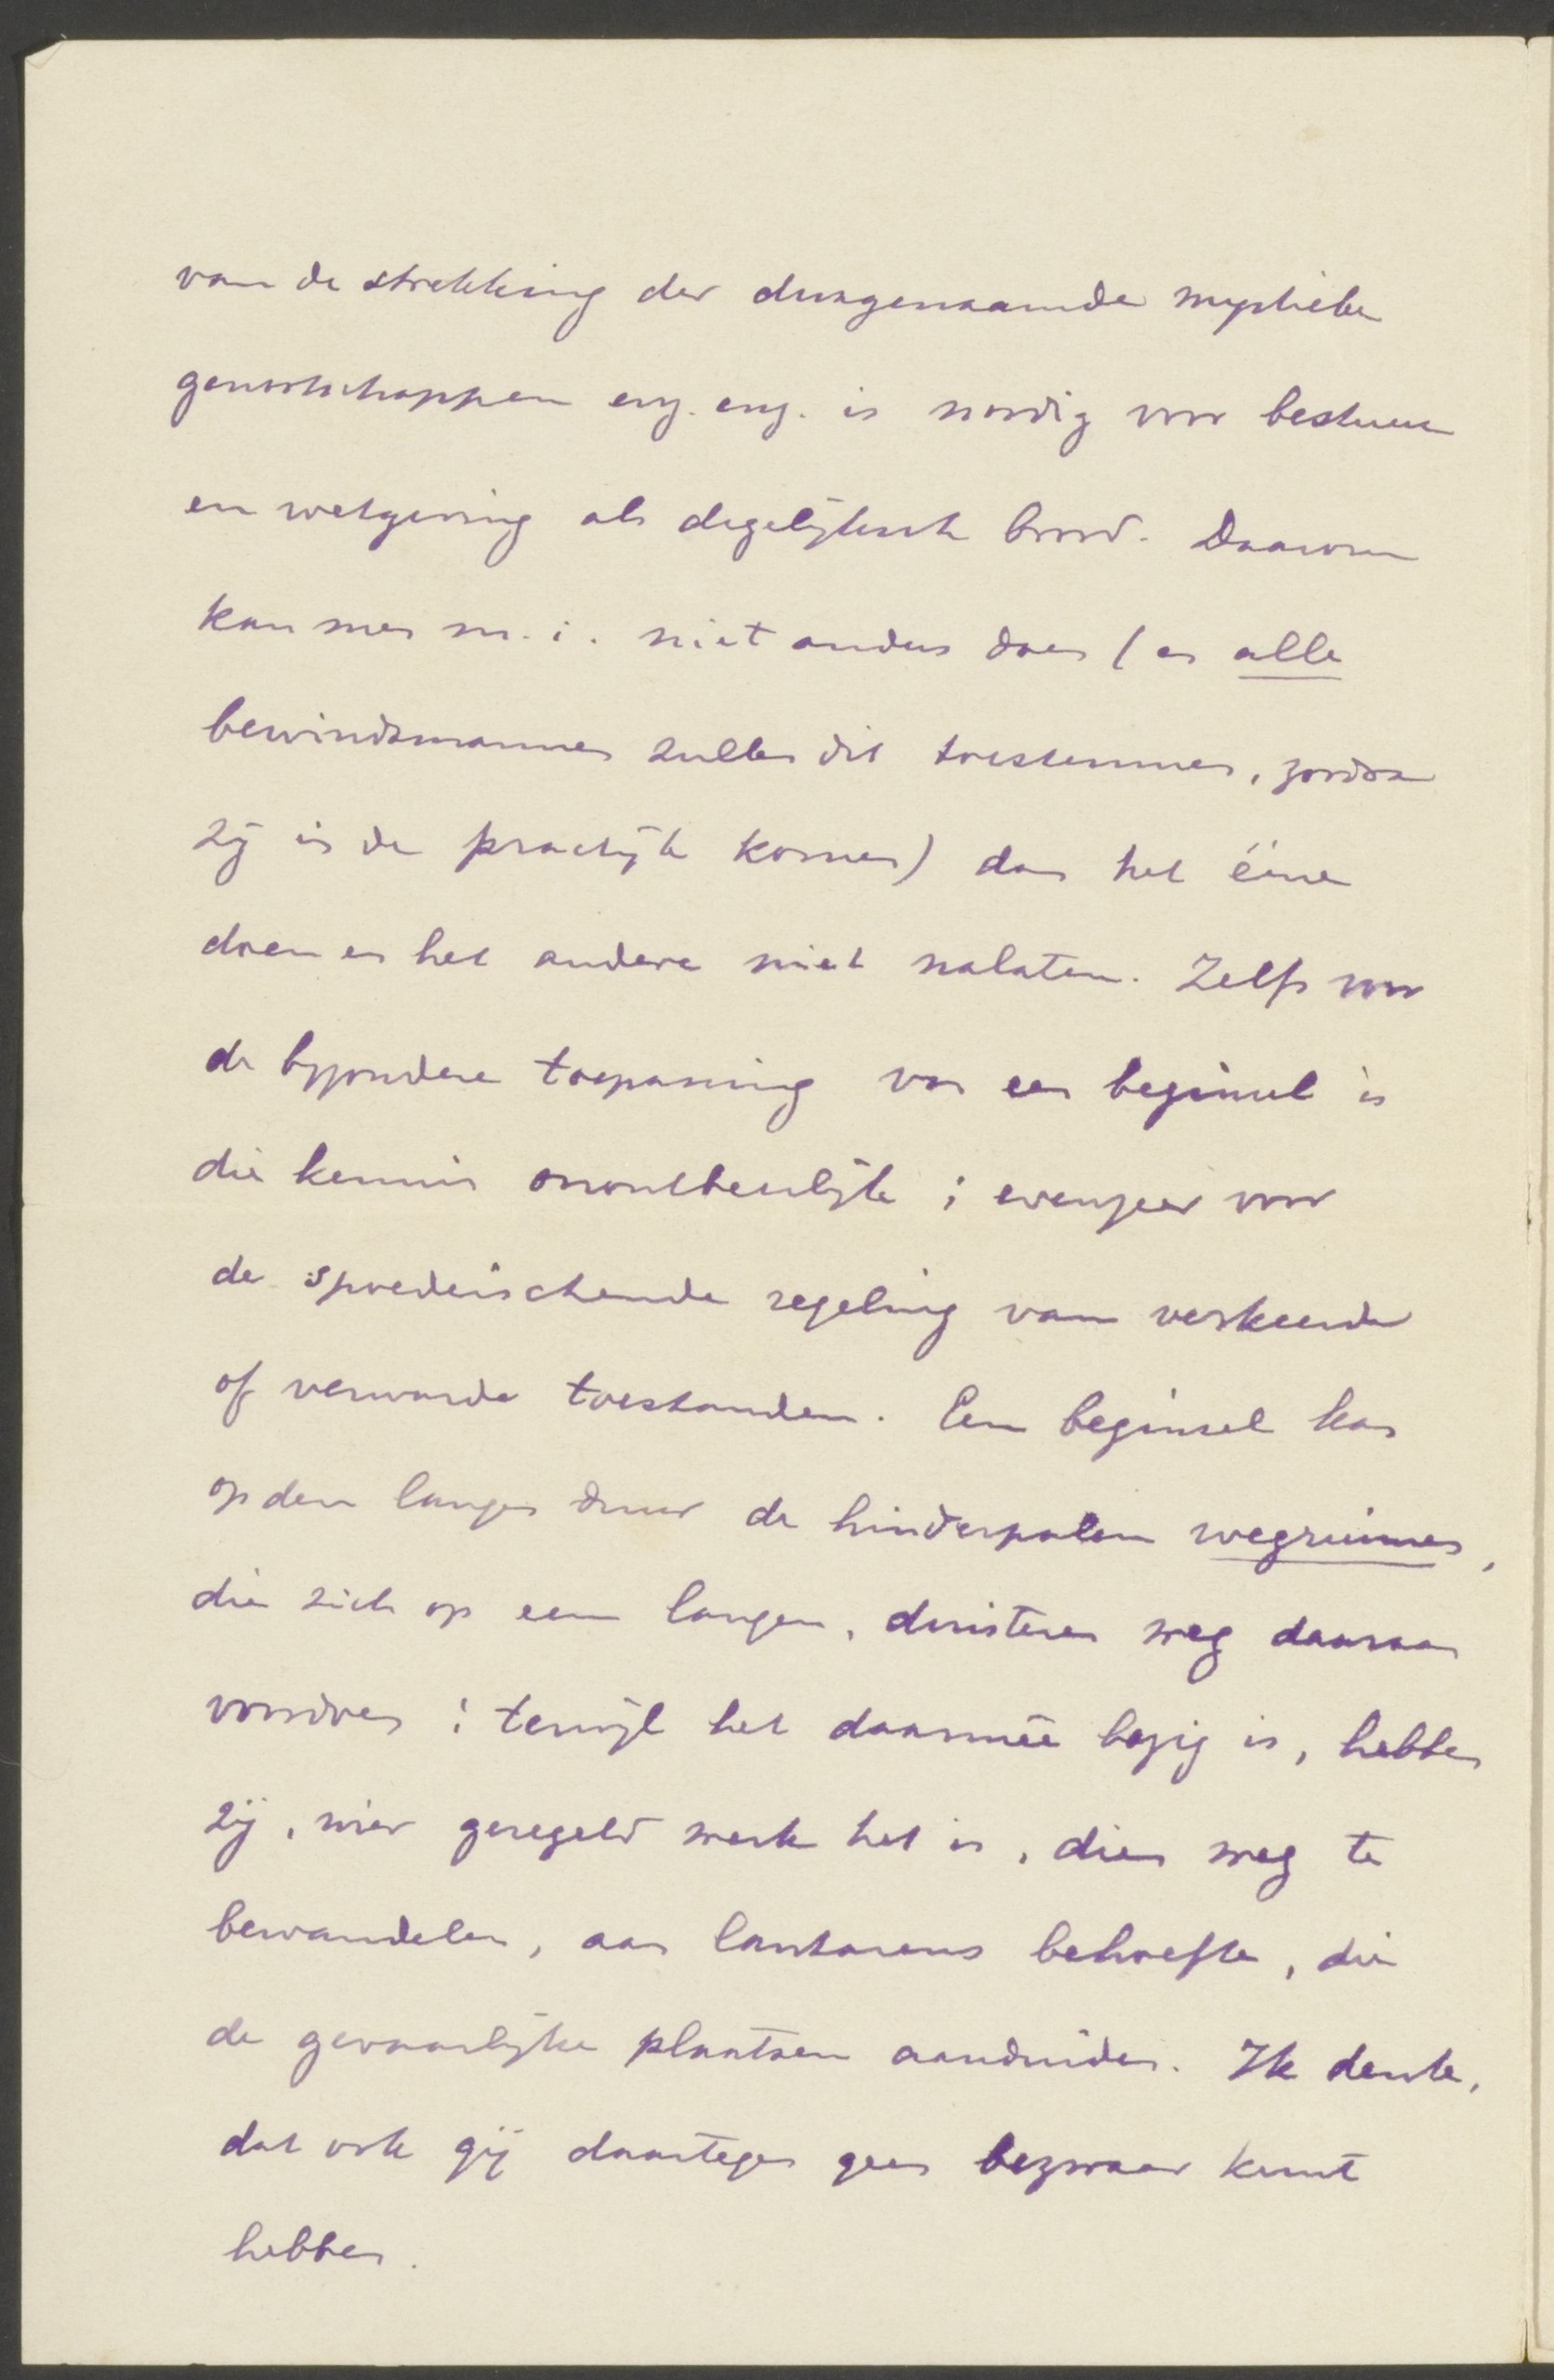 van de strekking der dusgenaamde mystieke
genootschappen enz. enz. is noodig voor bestuur
en wetgeving als degelijksch brood. Daarom
kan men m.i. niet anders doen (en alle
bewindsmannen zullen dit toestemmen, zoodra
zij in de practijk komen) dan het ééne
doen en het andere niet nalaten. Zelfs voor
de byzondere toepassing van een beginsel is
die kennis onontbeerlijk ; evenzeer voor
de spoedeischende regeling van verkeerde
of verwarde toestanden. Een beginsel kan
op den langen duur de hinderpalen wegruimen,
die zich op een langen, duisteren weg daaraan
voordoen ; terwijl het daarmeê bezig is, hebben
zij, wier geregeld werk het is, dien weg te
bewandelen, aan lantarens behoefte, die
de gevaarlijke plaatsen aanduiden. Ik denk,
dat ook gij daartegen geen bezwaar kunt
hebben.